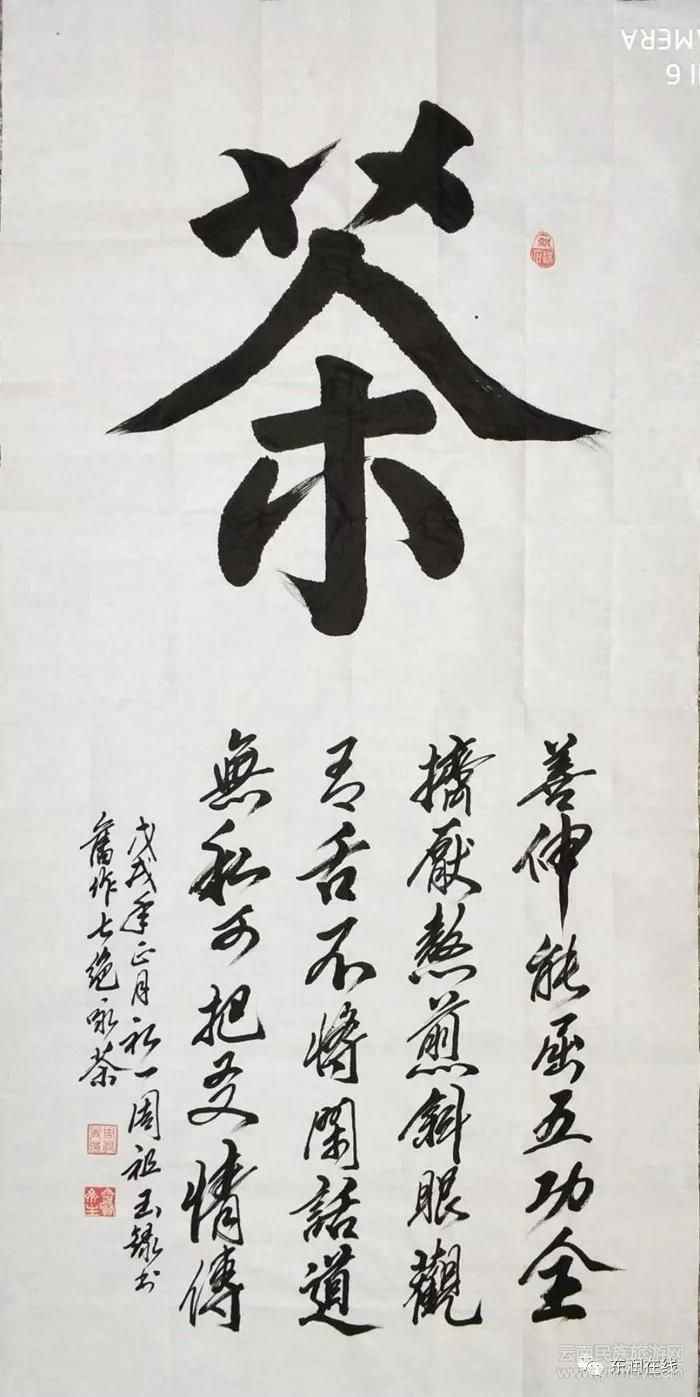 茶
善伸能屈五功全
擠厭熬煎斜眼觀
有舌不將閑話道
無私可把友情傳
戊戌年正月初一周祖玉錄書
舊作七絕咏茶
AMERA
云南民族旅游网
东润在线